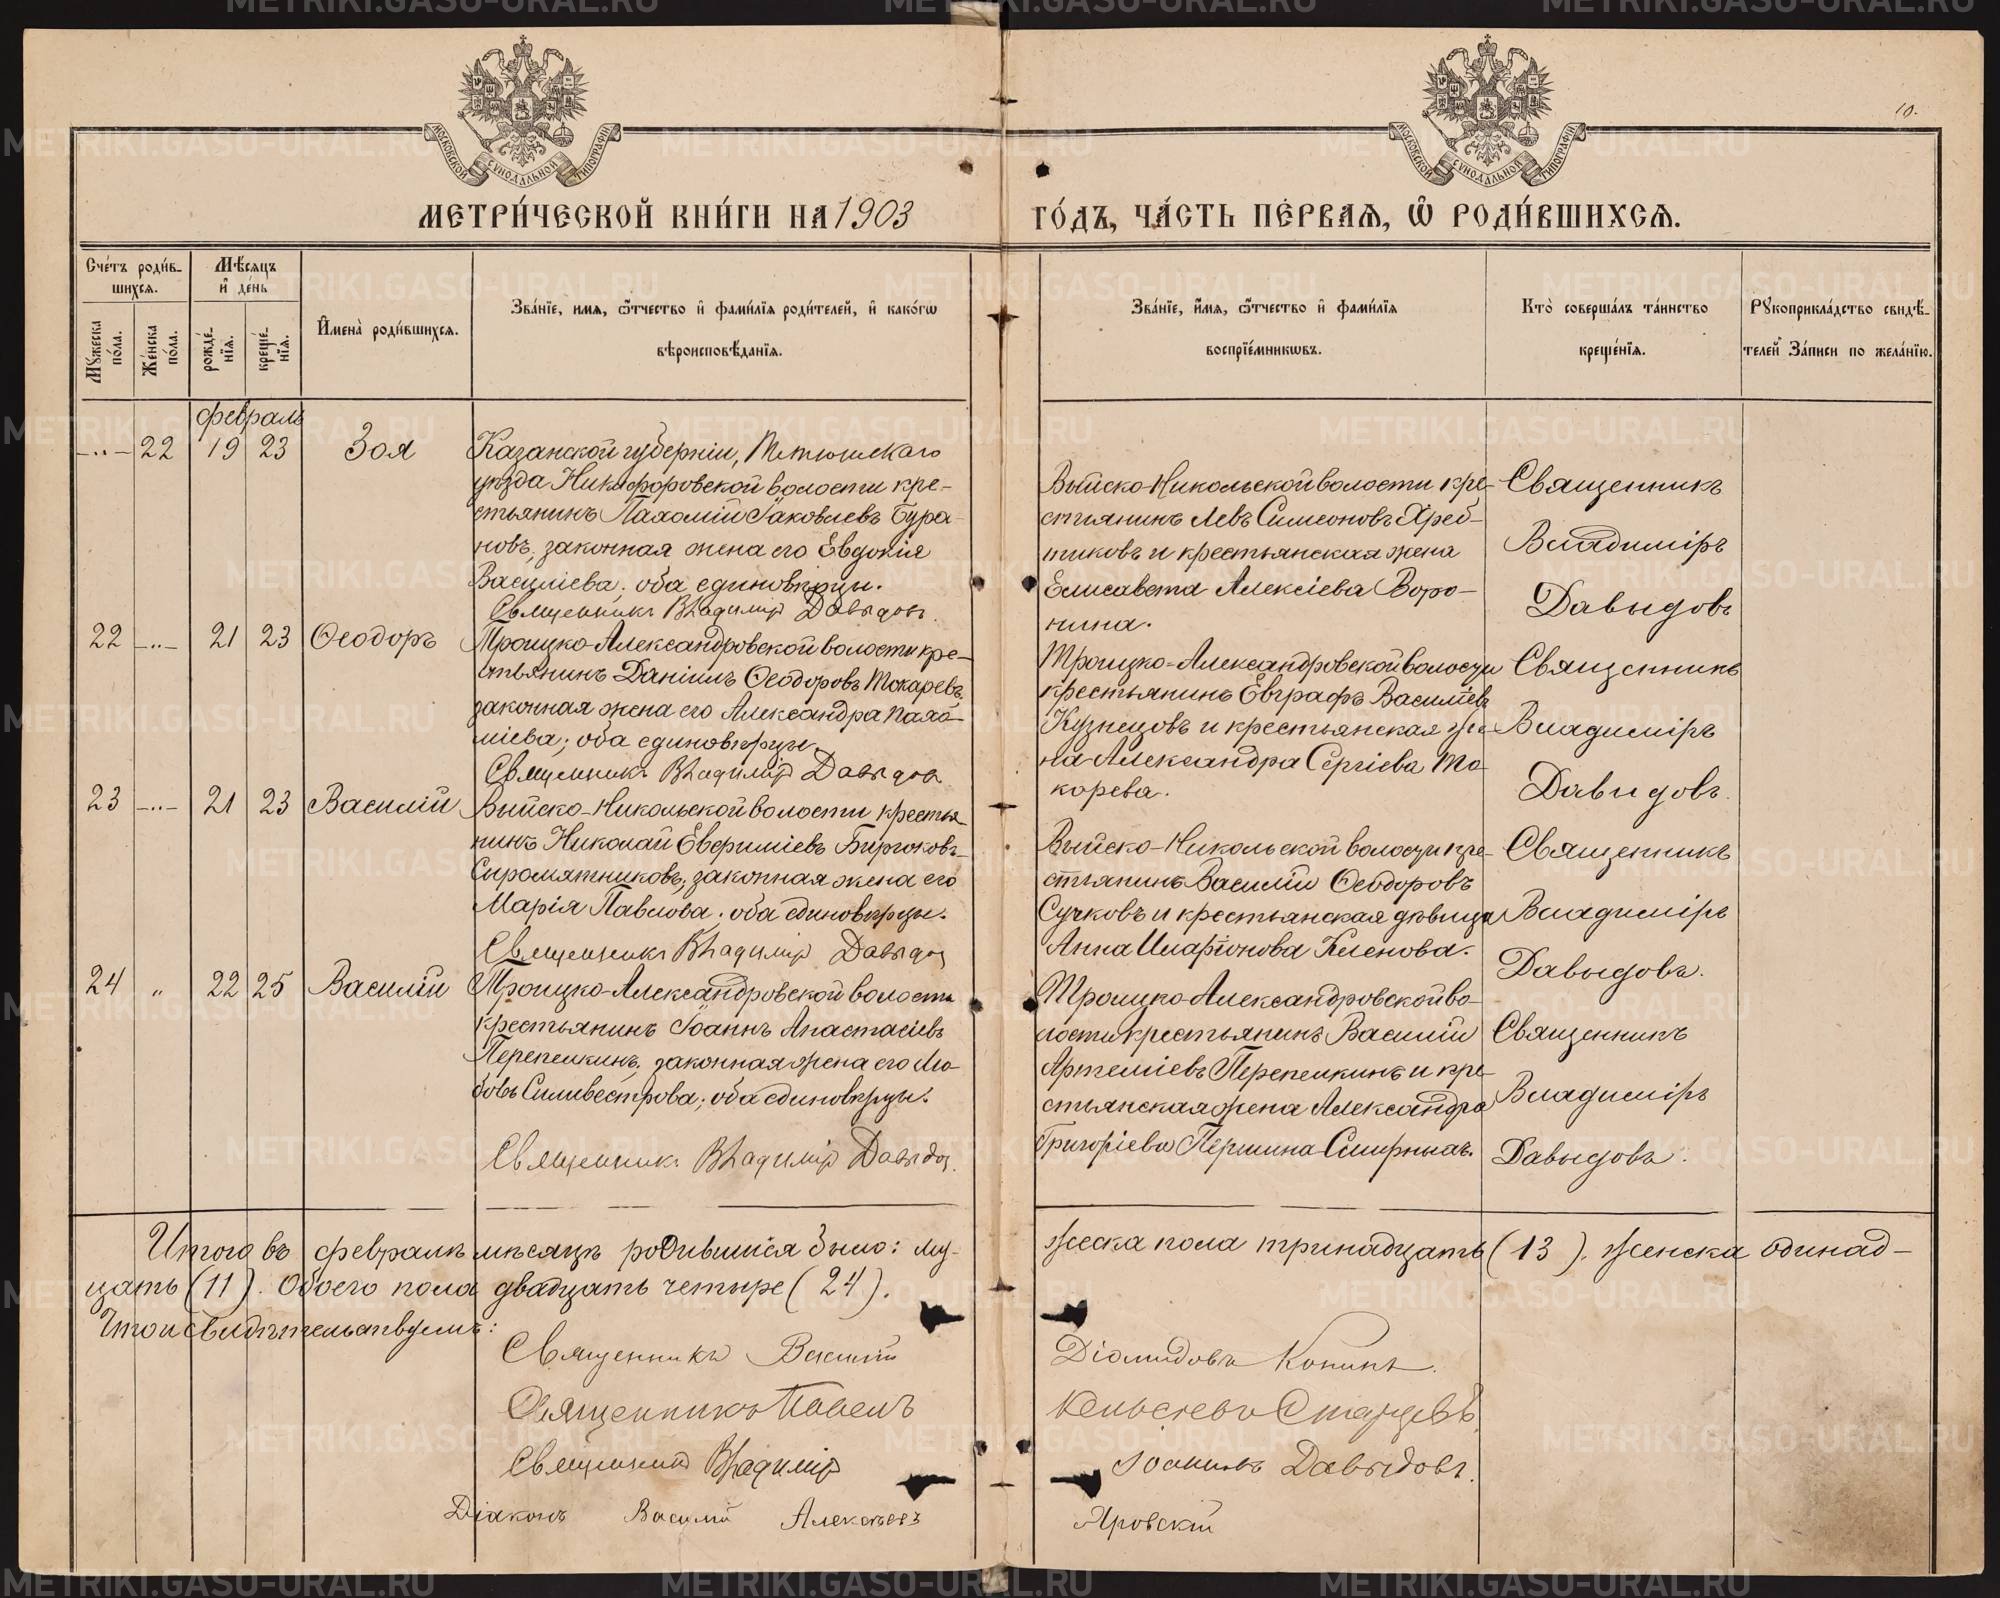 МЕТРИ́ЧЕСКОЙ КНИ́ГИ НА 1903
ГО́ДЪ, ЧА́СТЬ ПЕ́РВАЯ, Ѽ РОДИ́ВШИХСЯ.
10.
МОСКОВСКОЙ СѴНОДАЛЬНОЙ ТИПОГРАФІИ
МОСКОВСКОЙ СѴНОДАЛЬНОЙ ТИПОГРАФІИ
Сче́тъ роди́в-
шихся.
Мѣ́сяцъ
и҆ де́нь
Мꙋ́жеска по́ла.
Же́нска по́ла.
рожде́-
нїя.
креще́-
нїя.
И҆мена̀ роди́вшихся.
Зва́нїе, имя, ѻтчество и҆ фами́лїя роди́телей, и҆ како́гѡ
вѣроисповѣ́данїя.
Зва́нїе, и҆́мя, ѻтчество и҆ фами́лїя
воспрїе́мникѡвъ.
Кто̀ соверша́лъ та́инство
креще́нїя.
Рꙋкоприкла́дство свидѣ́-
телей за́писи по жела́нїю.
февраль
-"- 22 19 23 Зоя
Казанской губерніи, Тетюшскаго
уѣзда Никифоровской волости кре-
стьянинъ Пахомій Іаковлевъ Бура-
новъ, законная жена его Евдокія
Василіева. оба единовѣрцы.
Священникъ Владиміръ Давыдовъ.
Выйско-Никольской волости кре-
стьянинъ Левъ Симеоновъ Хреб-
тиковъ и крестьянская жена
Елисавета Алексіева Воро-
нина.
Священникъ
Владиміръ
Давыдовъ
22 -"- 21 23 Ѳеодоръ
Троицко-Александровской волости кре-
стьянинъ Даніилъ Ѳеодоровъ Токаревъ,
законная жена его Александра Пахо-
міева; оба единовѣрцы.
Священникъ Владиміръ Давыдовъ
Троицко-Александровской волости
крестьянинъ Евграфъ Василіевъ
Кузнецовъ и крестьянская же-
на Александра Сергіева То-
карева.
Священникъ
Владиміръ
Давыдовъ.
23 -"- 21 23 Василій
Выйско-Никольской волости крестья-
нинъ Николай Евфиміевъ Бирюковъ-
Сыромятниковъ; законная жена его
Марія Павлова. оба единовѣрцы.
Священникъ Владиміръ Давыдов
Выйско-Никольской волости кре-
стьянинъ Василій Ѳеодоровъ
Сучковъ и крестьянская дѣвица
Анна Иларіонова Кленова.
Священникъ
Владиміръ
Давыдовъ.
24 " 22 25 Василій
Троицко-Александровской волости
крестьянинъ Іоаннъ Анастасіевъ
Перепелкинъ, законная жена его Лю-
бовь Силивестрова; оба единовѣрцы.
Священникъ Владиміръ Давыдов.
Троицко-Александровской во-
лости крестьянинъ Василій
Артеміевъ Перепелкинъ и кре-
стьянская жена Александра
Григоріева Першина-Смирныхъ.
Священникъ
Владиміръ
Давыдовъ.
Итого въ февралѣ мѣсяцѣ родившихся было: му-
жеска пола тринадцать (13). женска одинад-
цать (11). Обоего пола двадцать четыре (24).
Что и свидѣтельствуемъ:
Священникъ Василій Діомидовъ Конинъ.
Священникъ Павелъ Старцевъ.
Священникъ Владиміръ Іоанновъ Давыдовъ.
Діаконъ Василій Алексѣевъ Яровскій